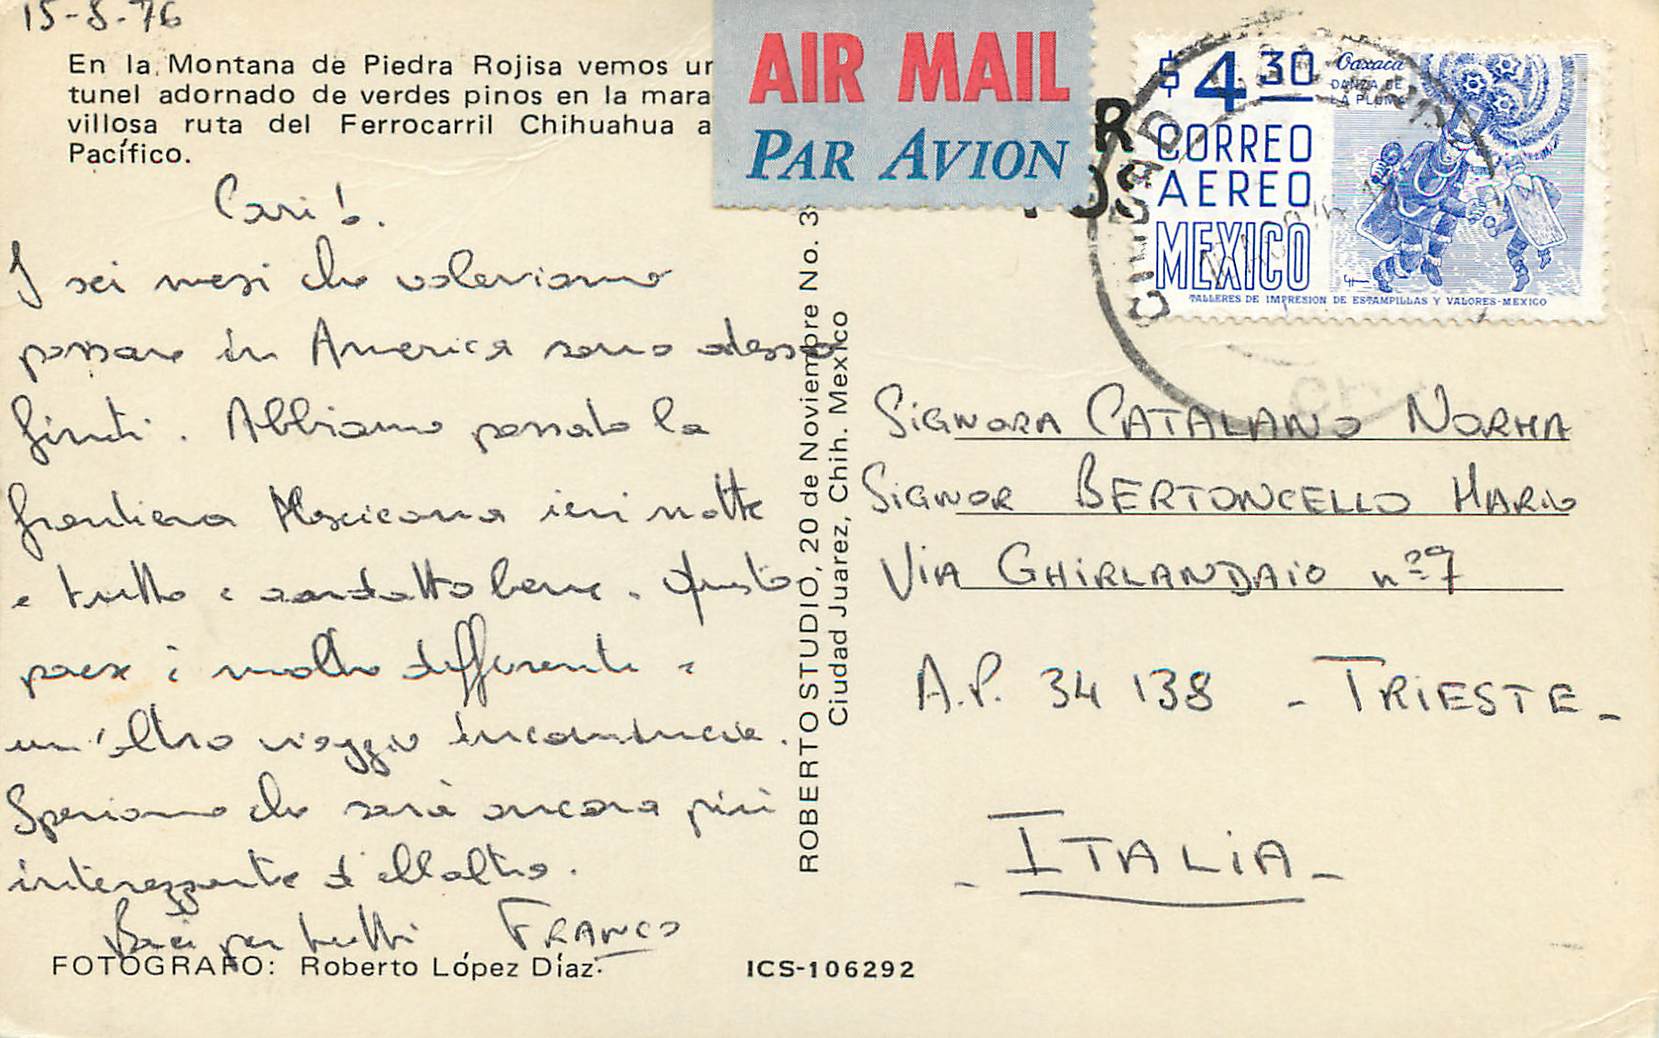 15-8-76
En la Montana de Piedra Rojisa vemos un
tunel adornado de verdes pinos en la mara
villosa ruta del Ferrocarril Chihuahua a
Pacífico.
Cari!
I sei mesi che volevamo
passare in America sono adesso
finiti. Abbiamo passato la
frontiera Messicana ieri notte
e tutto è andato bene. Questo
paese è molto differente e
un'altro viaggio incomincia.
Speriamo che sarà ancora più
interessante d'ellaltro.
Baci per tutti FRANCO
FOTOGRAFO: Roberto López Díaz.
ICS-106292
ROBERTO STUDIO, 20 de Noviembre No. 3
Ciudad Juarez, Chih. Mexico
AIR MAIL
PAR AVION
R
OS
$ 4 30
Oaxaca
DANZA DE
LA PLUMA
CORREO
AEREO
MEXICO
TALLERES DE IMPRESION DE ESTAMPILLAS Y VALORES-MEXICO
CIUDAD
SIGNORA CATALANO NORMA
SIGNOR BERTONCELLO MARIO
VIA GHIRLANDAIO nº 7
A.P. 34 138 - TRIESTE -
- ITALIA -